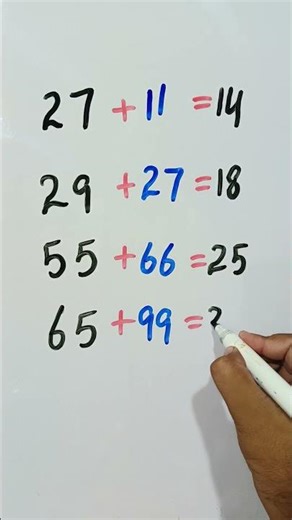 27 + 11 = 14
29 + 27 = 18
55 + 66 = 25
65 + 99 =